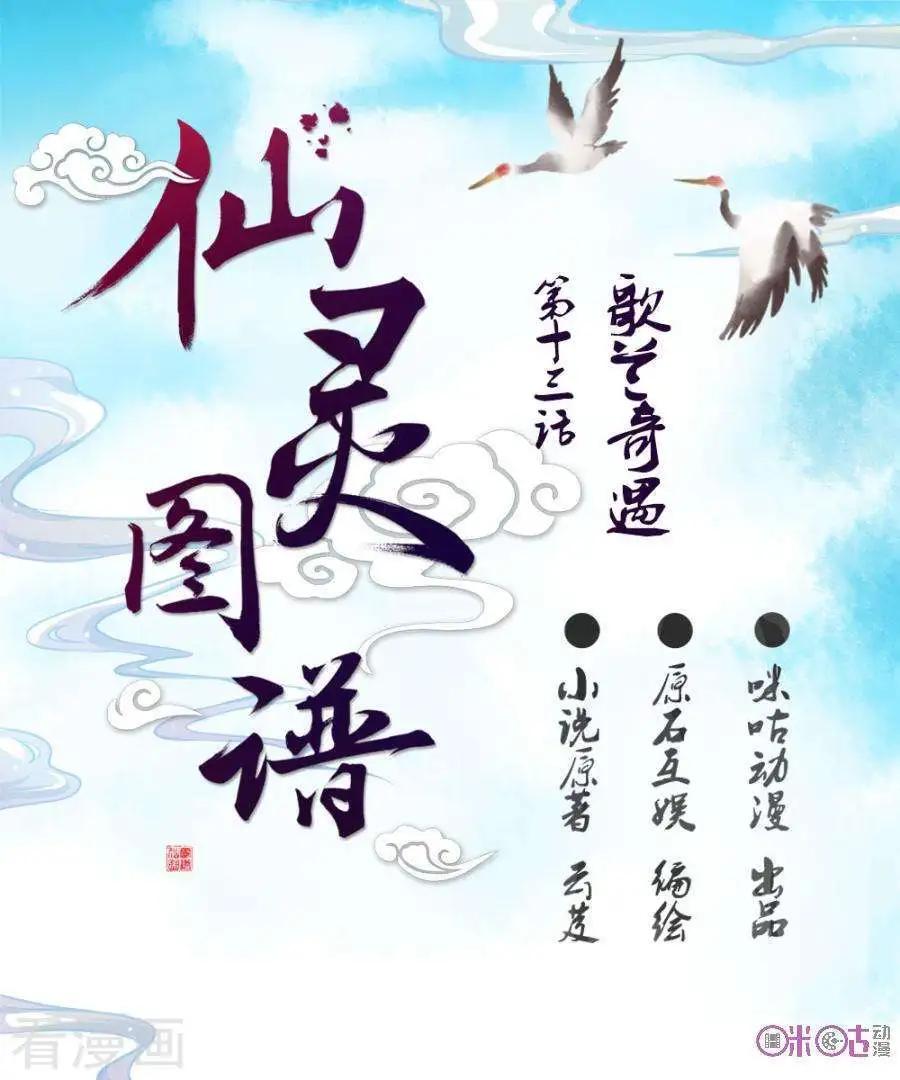 仙灵图谱
歌兰奇遇
第十三话
咪咕动漫 出品
原石互娱 编绘
小说原著 云芨
看漫画
咪咕动漫